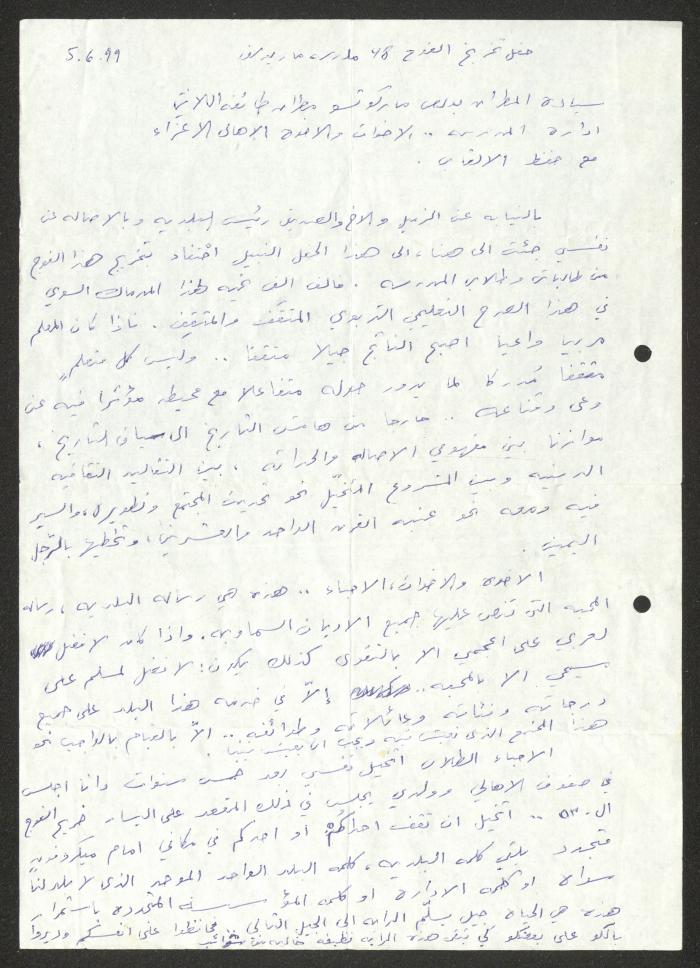 حفل تخريج الفوج 48 مدرسة مار يوسف 5.6.99
سيادة المطران بولص ماركوتسو مطران طائفة اللاتين
ادارة المدرسة .. الاخوات والاخوة الاهالي الاعزاء
مع حفظ الالقاب .
بالنيابه عن الزميل والاخ والصديق رئيس البلديه وبالاصاله عن
نفسي جئت الى هنا، الى هذا الحفل النبيل احتفاء بتخريج هذا الفوج
من طالبات وطلاب المدرسه . فالف الف تحيه لهذا المدماك السوي
في هذا الصرح التعليمي التربوي المثقَّف والمثقِّف . فاذا كان المعلم
مربيا واعيا اصبح الناتج جيلا مثقفا .. وليس كل متعلمٍ
مثقفا مُدركا لما يدور حوله متفاعلا مع محيطه مؤثرا فيه عن
وعي وقناعه .. خارجا من هامش التاريخ الى سياق التاريخ ،
موازنا بين مفهومي الاصاله والحداثه ، بين التقاليد الثقافيه
الدينيه وبين المشروع المتخيّل نحو تحديث المجتمع وتطويره، والسير
فيه ومعه نحو عتبه القرن الواحد والعشرين، وتخطيها بالرِّجل
اليمين .
الاخوه والاخوات، الاحباء .. هذه هي رساله البلديه ، رساله
المحبه التي تنص عليها جميع الاديان السماويه. واذا كان لا فضل
لعربي على اعجمي الا بالتقوى كذلك يكون: لا فضل لمسلم على
مسيحي الا بالمحبه.. إلاّ في خدمه هذا البلد على جميع
درجاته وفئاته وعائلاته وطوائفه .. الاّ بالقيام بالواجب نحو
هذا المجتمع الذي نعيش فيه ويجب ان يعيش فينا
الاحباء الطلاب اتخيل نفسي بعد خمس سنوات وانا اجلس
في صفوف الاهالي وولدي يجلس في ذلك المقعد على اليسار خريج الفوج
ال- 53 .. اتخيل ان تقف احداكُنَّ او احدكم في مكاني امام ميكروفون
متجدد يلقي كلمه البلديه ، كلمه البلد الواحد الموحد الذي لا بلد لنا
سواه او كلمه الادارة او كلمه المؤسسه المتجدده باستمرار
هذه هي الحياة جيل يسلّم الرايه الى الجيل التالي .. فحافظوا على انفسكم وديروا
بالكو على بعضكو كي تبقى هذه الرايه نظيفه خاليه من شوائب